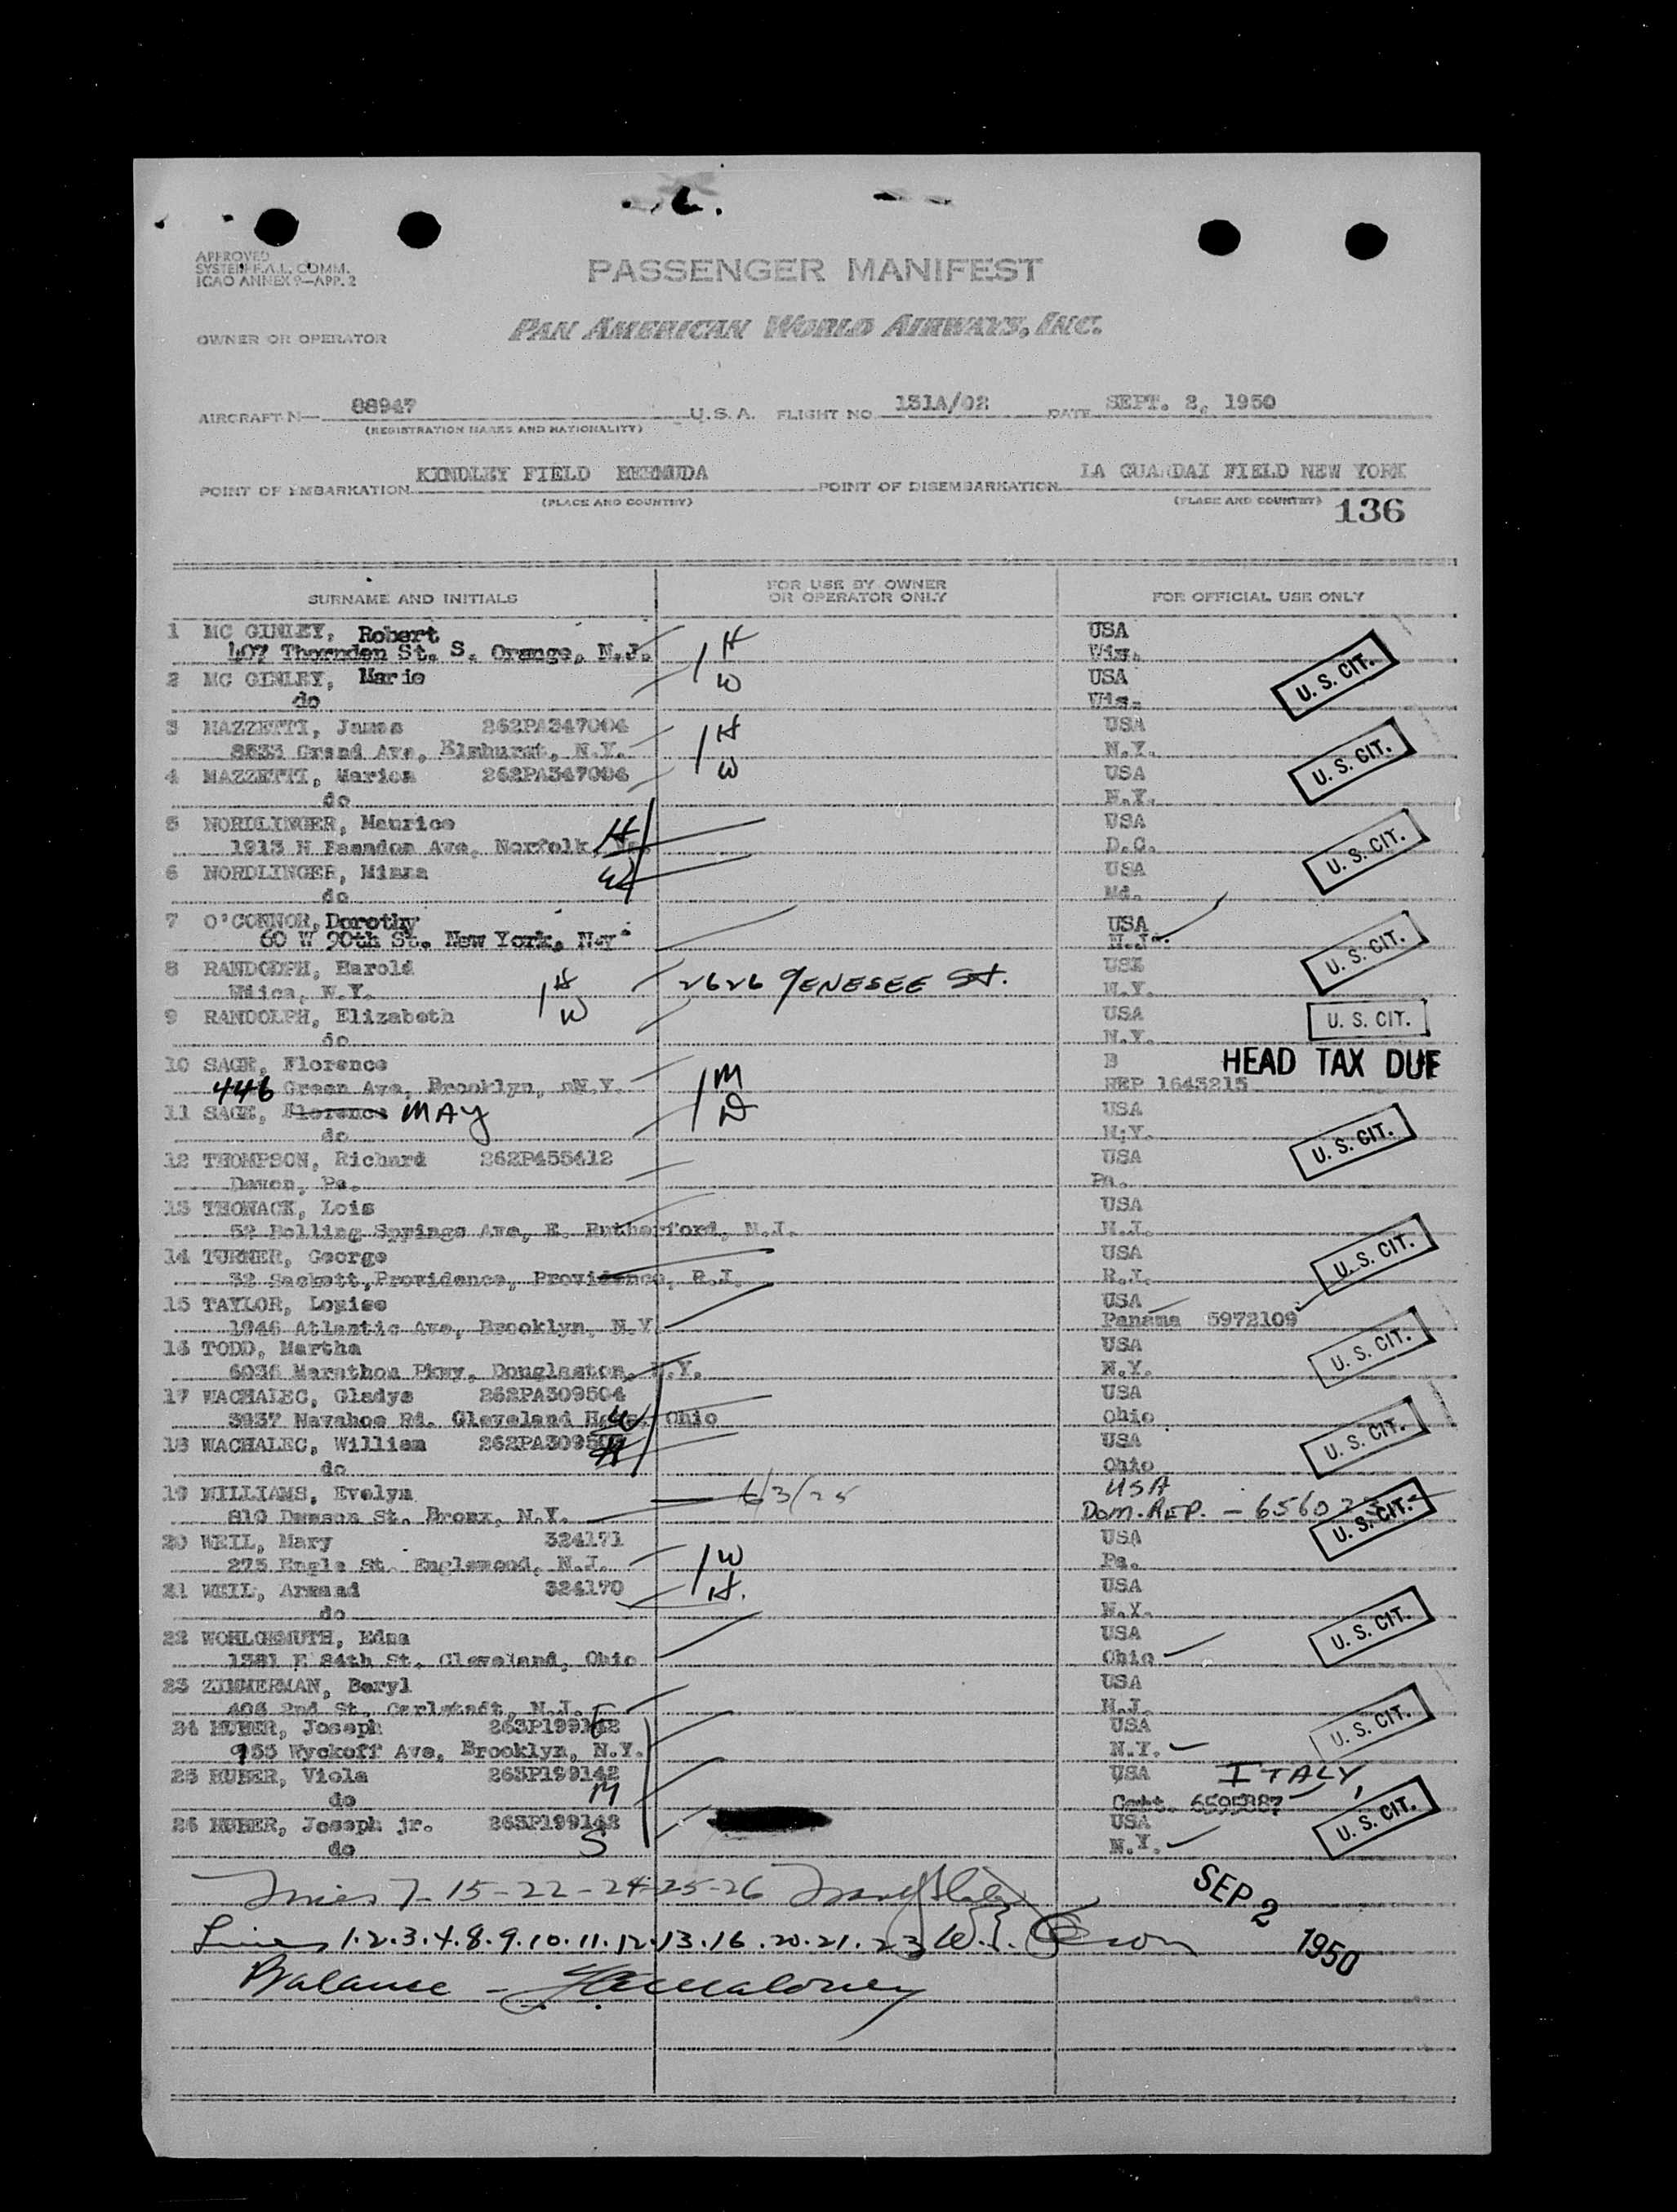 APPROVED
SYSTEM F.A.L. COMM.
ICAO ANNEX 9—APP. 2
PASSENGER MANIFEST
OWNER OR OPERATOR PAN AMERICAN WORLD AIRWAYS, INC.
AIRCRAFT N— 88947 U.S.A. FLIGHT NO. 131A/02 DATE SEPT. 2, 1950
(REGISTRATION MARKS AND NATIONALITY)
POINT OF EMBARKATION KINDLEY FIELD BERMUDA POINT OF DISEMBARKATION LA GUARDAI FIELD NEW YORK
(PLACE AND COUNTRY) (PLACE AND COUNTRY) 136
SURNAME AND INITIALS FOR USE BY OWNER OR OPERATOR ONLY FOR OFFICIAL USE ONLY
1 MC GINLEY, Robert H USA
407 Thornden St. S. Orange, N.J. Wis.
2 MC GINLEY, Marie W USA U. S. CIT.
do Wis.
3 MAZZETTI, James 262PA347004 H USA
8833 Grand Ave, Elmhurst, N.Y. N.Y.
4 MAZZETTI, Marion 262PA347004 W USA U. S. CIT.
do N.Y.
5 NORDLINGER, Maurice H USA
1913 H Ave, Norfolk, Va. D.C. U. S. CIT.
6 NORDLINGER, W USA
do Md.
7 O'CONNOR, Dorothy USA
60 W 90th St. New York, N.Y. N.J. U. S. CIT.
8 RANDODPH, Harold H USA
N.Y. W 2626 GENESEE St. N.Y.
9 RANDOLPH, Elizabeth USA U. S. CIT.
do N.Y.
10 SAGE, Florence M B HEAD TAX DUE
446 Green Ave, Brooklyn, N.Y. REP 1643215
11 SAGE, Florence MAY D USA
do N.Y. U. S. CIT.
12 THOMPSON, Richard 262P455412 USA
Devon, Pa. Pa.
13 THONACK, Lois USA
52 Rolling Springs Ave, E. Rutherford, N.J. N.J.
14 TURNER, George USA U. S. CIT.
32 Sackett, Providence, Providence, R.I. R.I.
15 TAYLOR, Louise USA
1946 Atlantic Ave, Brooklyn, N.Y. Panama 5972109
16 TODD, Martha USA U. S. CIT.
6036 Marathon Pkwy, Douglaston, N.Y. N.Y.
17 WACHALEC, Gladys 262PA309504 USA
3937 Navahoe Rd. Cleveland Ohio W Ohio
18 WACHALEC, William H USA U. S. CIT.
do Ohio
19 WILLIAMS, Evelyn 6/3/25 USA
810 Dawson St. Bronx, N.Y. Dom. REP. – U. S. CIT.
20 WEIL, Mary 324171 W USA
275 Engle St. Englewood, N.J. Pa.
21 WEIL, Armand 324170 H. USA
do N.Y. U. S. CIT.
22 WOHLGEMUTH, Edna USA
1381 E 84th St. Cleveland, Ohio Ohio
23 ZIMMERMAN, Beryl USA
406 2nd St. Carlstadt, N.J. N.J. U. S. CIT.
24 HUBER, Joseph 263P199142 F USA
955 Wyckoff Ave, Brooklyn, N.Y. N.Y.
25 HUBER, Viola 263P199142 USA ITALY
do M Cert. 6595887
26 HUBER, Joseph jr. 263P199142 USA U. S. CIT.
do S N.Y.
Lines 7-15-22-24-25-26
SEP 2 1950
Lines 1.2.3.4.8.9.10.11.12.13.16.20.21.23
Balance –